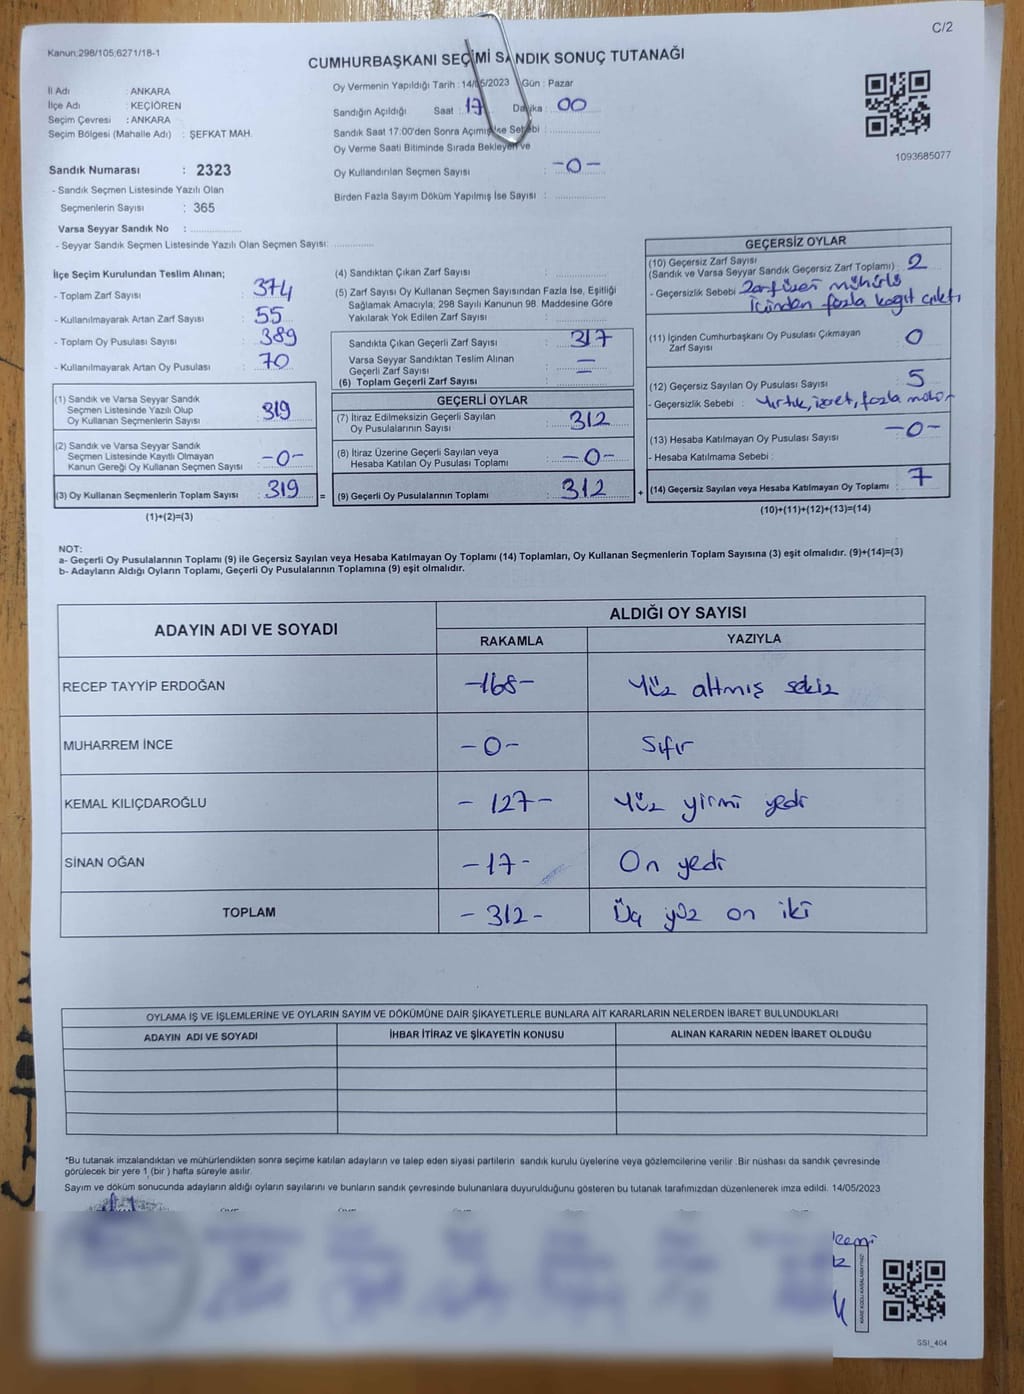 C/2
Kanun:298/105;6271/18-1
CUMHURBAŞKANI SEÇİMİ SANDIK SONUÇ TUTANAĞI
İl Adı : ANKARA
İlçe Adı : KEÇİÖREN
Seçim Çevresi : ANKARA
Seçim Bölgesi (Mahalle Adı) : ŞEFKAT MAH.
Oy Vermenin Yapıldığı Tarih : 14/05/2023 Gün : Pazar
Sandığın Açıldığı Saat : 17 Dakika : 00
Sandık Saat 17:00'den Sonra Açımış İse Sebebi :
Oy Verme Saati Bitiminde Sırada Bekleyen ve
Oy Kullandırılan Seçmen Sayısı : -0-
Birden Fazla Sayım Döküm Yapılmış İse Sayısı :
1093685077
Sandık Numarası : 2323
- Sandık Seçmen Listesinde Yazılı Olan
Seçmenlerin Sayısı : 365
Varsa Seyyar Sandık No :
- Seyyar Sandık Seçmen Listesinde Yazılı Olan Seçmen Sayısı:
İlçe Seçim Kurulundan Teslim Alınan;
- Toplam Zarf Sayısı : 374
- Kullanılmayarak Artan Zarf Sayısı : 55
- Toplam Oy Pusulası Sayısı : 389
- Kullanılmayarak Artan Oy Pusulası : 70
(1) Sandık ve Varsa Seyyar Sandık
Seçmen Listesinde Yazılı Olup
Oy Kullanan Seçmenlerin Sayısı : 319
(2) Sandık ve Varsa Seyyar Sandık
Seçmen Listesinde Kayıtlı Olmayan
Kanun Gereği Oy Kullanan Seçmen Sayısı : -0-
(3) Oy Kullanan Seçmenlerin Toplam Sayısı : 319 =
(1)+(2)=(3)
(4) Sandıktan Çıkan Zarf Sayısı :
(5) Zarf Sayısı Oy Kullanan Seçmen Sayısından Fazla İse, Eşitliği
Sağlamak Amacıyla; 298 Sayılı Kanunun 98. Maddesine Göre
Yakılarak Yok Edilen Zarf Sayısı :
Sandıkta Çıkan Geçerli Zarf Sayısı : 317
Varsa Seyyar Sandıktan Teslim Alınan
Geçerli Zarf Sayısı : -
(6) Toplam Geçerli Zarf Sayısı : -
GEÇERLİ OYLAR
(7) İtiraz Edilmeksizin Geçerli Sayılan
Oy Pusulalarının Sayısı : 312
(8) İtiraz Üzerine Geçerli Sayılan veya
Hesaba Katılan Oy Pusulası Toplamı : -0-
(9) Geçerli Oy Pusulalarının Toplamı : 312 +
GEÇERSİZ OYLAR
(10) Geçersiz Zarf Sayısı
(Sandık ve Varsa Seyyar Sandık Geçersiz Zarf Toplamı) : 2
- Geçersizlik Sebebi : Zarf üzeri mühürlü
İçinden fazla kağıt çıktı
(11) İçinden Cumhurbaşkanı Oy Pusulası Çıkmayan
Zarf Sayısı : 0
(12) Geçersiz Sayılan Oy Pusulası Sayısı : 5
- Geçersizlik Sebebi : Yırtık, işret, fazla mühür
(13) Hesaba Katılmayan Oy Pusulası Sayısı : -0-
- Hesaba Katılmama Sebebi :
(14) Geçersiz Sayılan veya Hesaba Katılmayan Oy Toplamı : 7
(10)+(11)+(12)+(13)=(14)
NOT:
a- Geçerli Oy Pusulalarının Toplamı (9) ile Geçersiz Sayılan veya Hesaba Katılmayan Oy Toplamı (14) Toplamları, Oy Kullanan Seçmenlerin Toplam Sayısına (3) eşit olmalıdır. (9)+(14)=(3)
b- Adayların Aldığı Oyların Toplamı, Geçerli Oy Pusulalarının Toplamına (9) eşit olmalıdır.
ADAYIN ADI VE SOYADI ALDIĞI OY SAYISI
RAKAMLA YAZIYLA
RECEP TAYYİP ERDOĞAN -168- Yüz altmış sekiz
MUHARREM İNCE -0- Sıfır
KEMAL KILIÇDAROĞLU -127- Yüz yirmi yedi
SİNAN OĞAN -17- On yedi
TOPLAM -312- Üç yüz on iki
OYLAMA İŞ VE İŞLEMLERİNE VE OYLARIN SAYIM VE DÖKÜMÜNE DAİR ŞİKAYETLERLE BUNLARA AİT KARARLARIN NELERDEN İBARET BULUNDUKLARI
ADAYIN ADI VE SOYADI İHBAR İTİRAZ VE ŞİKAYETİN KONUSU ALINAN KARARIN NEDEN İBARET OLDUĞU
*Bu tutanak imzalandıktan ve mühürlendikten sonra seçime katılan adayların ve talep eden siyasi partilerin sandık kurulu üyelerine veya gözlemcilerine verilir .Bir nüshası da sandık çevresinde
görülecek bir yere 1 (bir ) hafta süreyle asılır.
Sayım ve döküm sonucunda adayların aldığı oyların sayılarını ve bunların sandık çevresinde bulunanlara duyurulduğunu gösteren bu tutanak tarafımızdan düzenlenerek imza edildi. 14/05/2023
KARE KODU KARALAMAYINIZ!
SSI_404